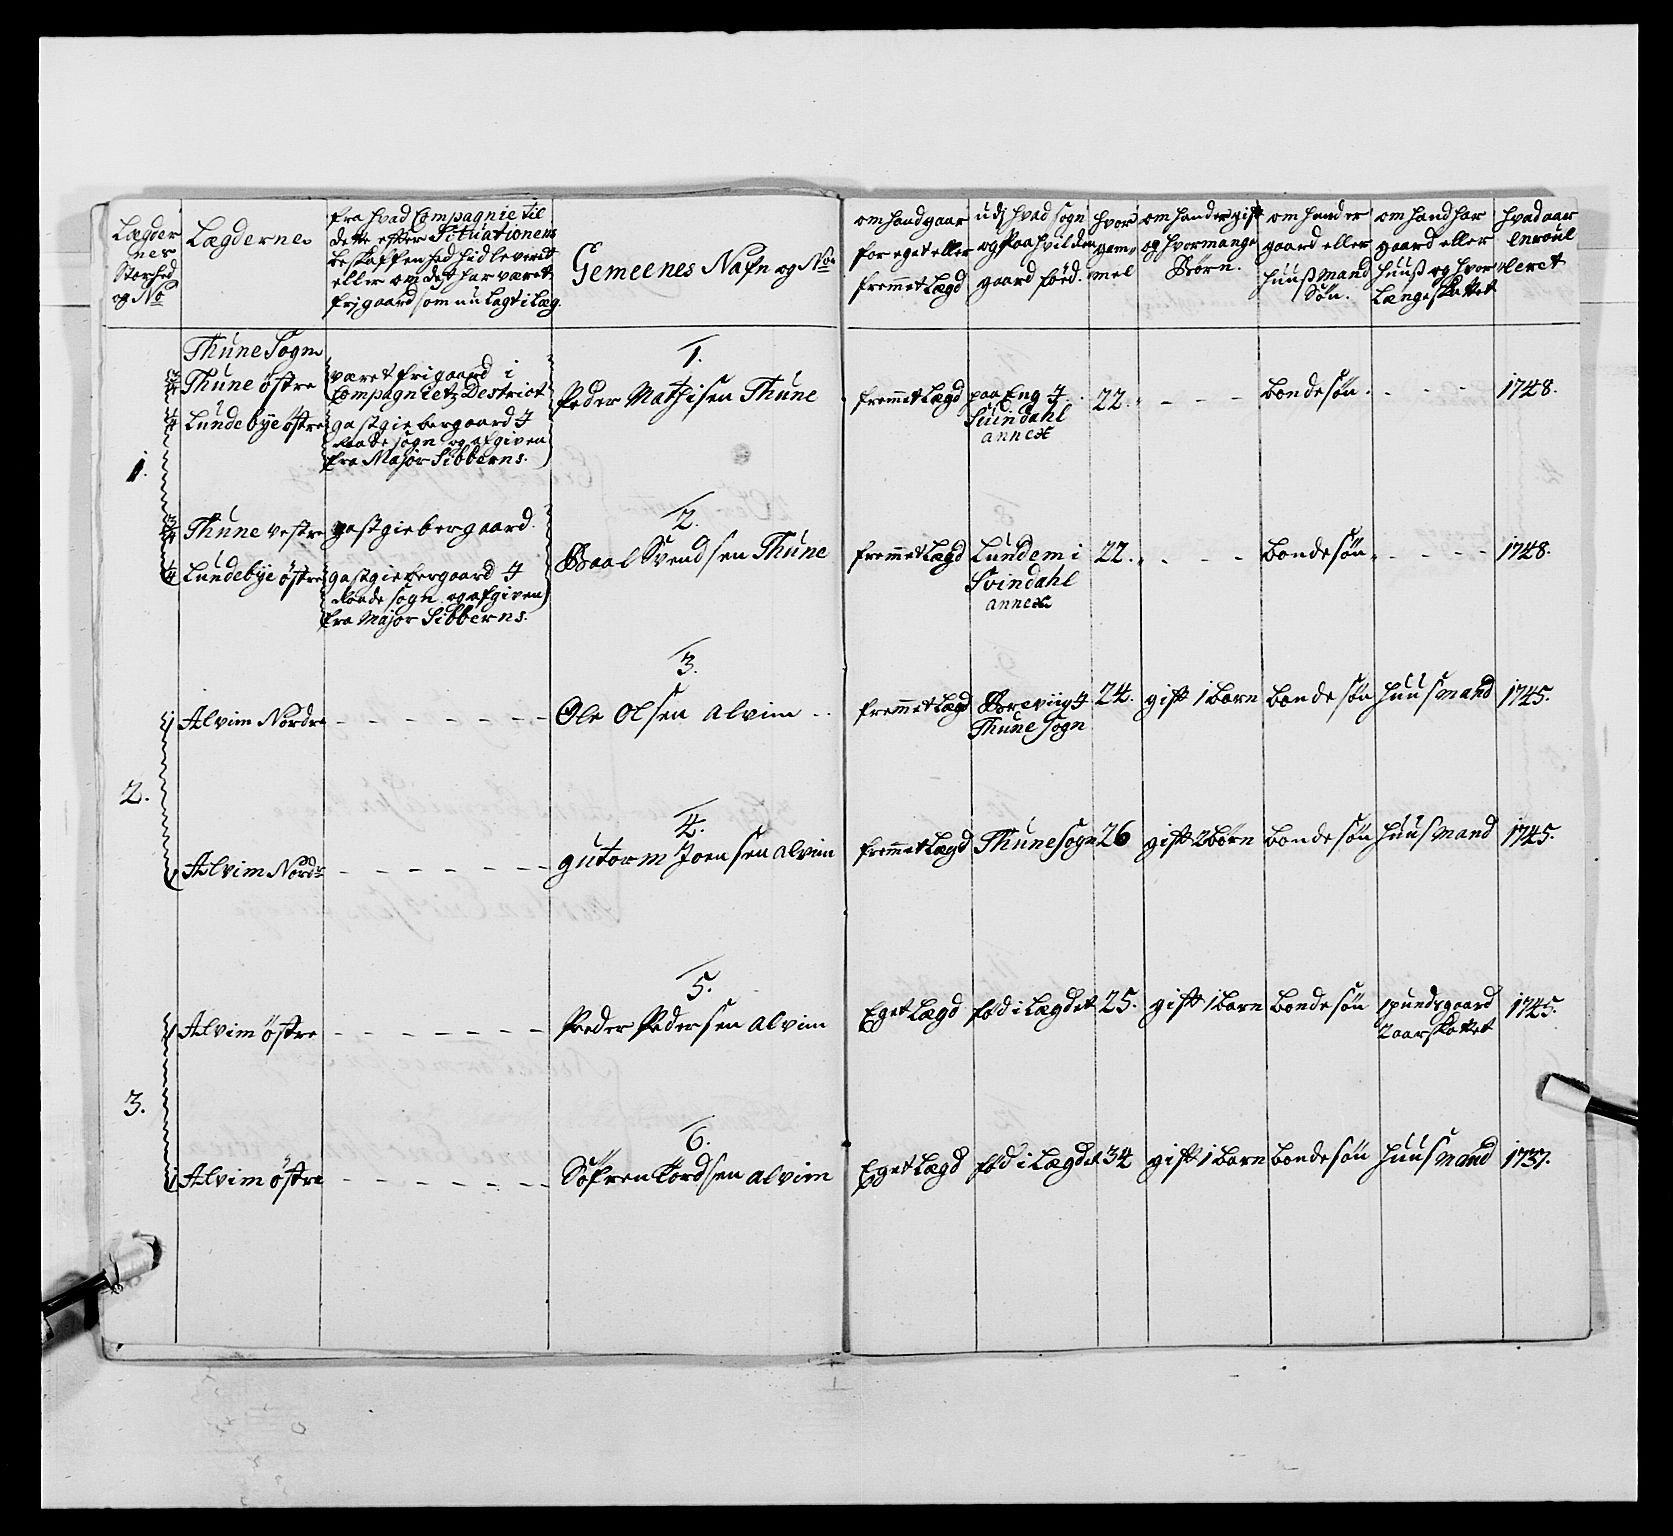 Lægder
nes
Størhed
og No
Lægderne
fra hvad Compagnie til
dette efter Situationens
beskaffenhed hid leveret
eller om det har været
frigaard som nu lagt i Læg.
Gemeenes Nafn og No
om hand gaar
for eget eller
fremmet Lægd
udj hvad sogn
og paa hvilden
gaard förd.
hvor
gam
mel
om hand er gift
og hvor mange
Börn.
om hand er
gaard eller
huusmand
Sön.
om hand har
gaard eller
huuß og hvor
længe skattet
hvad aar
enroul
leret
1.
Thune Sogn
3/4 Thune östre
1/4 Lundebye östre
været frigaard i
Compagnietz Destrict
gastgiebergaard J
Raade sogn og afgiven
fra Major Sibberns.
1.
Peder Mathisen Thune
fremmet Lægd
paa Eng J
Svindahl
annex
22.
bondesön
1748.
3/4 Thune vestre
1/4 Lundebye östre
gastgiebergaard.
gastgiebergaard J
Raade sogn og afgiven
fra Major Sibberns.
2.
Paal Svendsen Thune
fremmet Lægd
Lundem i
Svindahl
annex
22.
bondesön
1748.
2.
1 Alvim Nordre
3.
Ole Olsen Alvim
fremmet Lægd
Thune sogn
24.
gift 1 barn
bondesön
huusmand
1745.
1 Alvim Nordr
4.
gutorm Joensen Alvim
fremmet Lægd
Thune sogn
26
gift 2 börn
bondesön
huusmand
1745.
3.
1 Alvim östre
5.
Peder Pedersen Alvim
Eget Lægd
fød i Lægdet
25.
gift 1 barn
bondesön
1 pundsgaard
2 aar skattet
1745.
1 Alvim östre
6.
Söfren Tordsen Alvim
Eget Lægd
fød i Lægdet
34
gift 1 barn
bondesön
huusmand
1737.